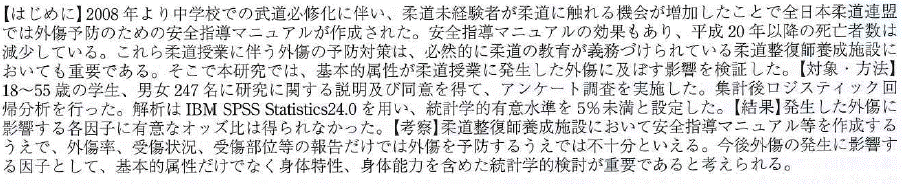 【はじめに】2008年より中学校での武道必修化に伴い、柔道未経験者が柔道に触れる機会が増加したことで全日本柔道連盟
では外傷予防のための安全指導マニュアルが作成された。安全指導マニュアルの効果もあり、平成20年以降の死亡者数は
減少している。これら柔道授業に伴う外傷の予防対策は、必然的に柔道の教育が義務づけられている柔道整復師養成施設に
おいても重要である。そこで本研究では、基本的属性が柔道授業に発生した外傷に及ぼす影響を検証した。【対象・方法】
18～55歳の学生、男女247名に研究に関する説明及び同意を得て、アンケート調査を実施した。集計後ロジスティック回
帰分析を行った。解析はIBM SPSS Statistics24.0を用い、統計学的有意水準を5％未満と設定した。【結果】発生した外傷に
影響する各因子に有意なオッズ比は得られなかった。【考察】柔道整復師養成施設において安全指導マニュアル等を作成する
うえで、外傷率、受傷状況、受傷部位等の報告だけでは外傷を予防するうえでは不十分といえる。今後外傷の発生に影響す
る因子として、基本的属性だけでなく身体特性、身体能力を含めた統計学的検討が重要であると考えられる。